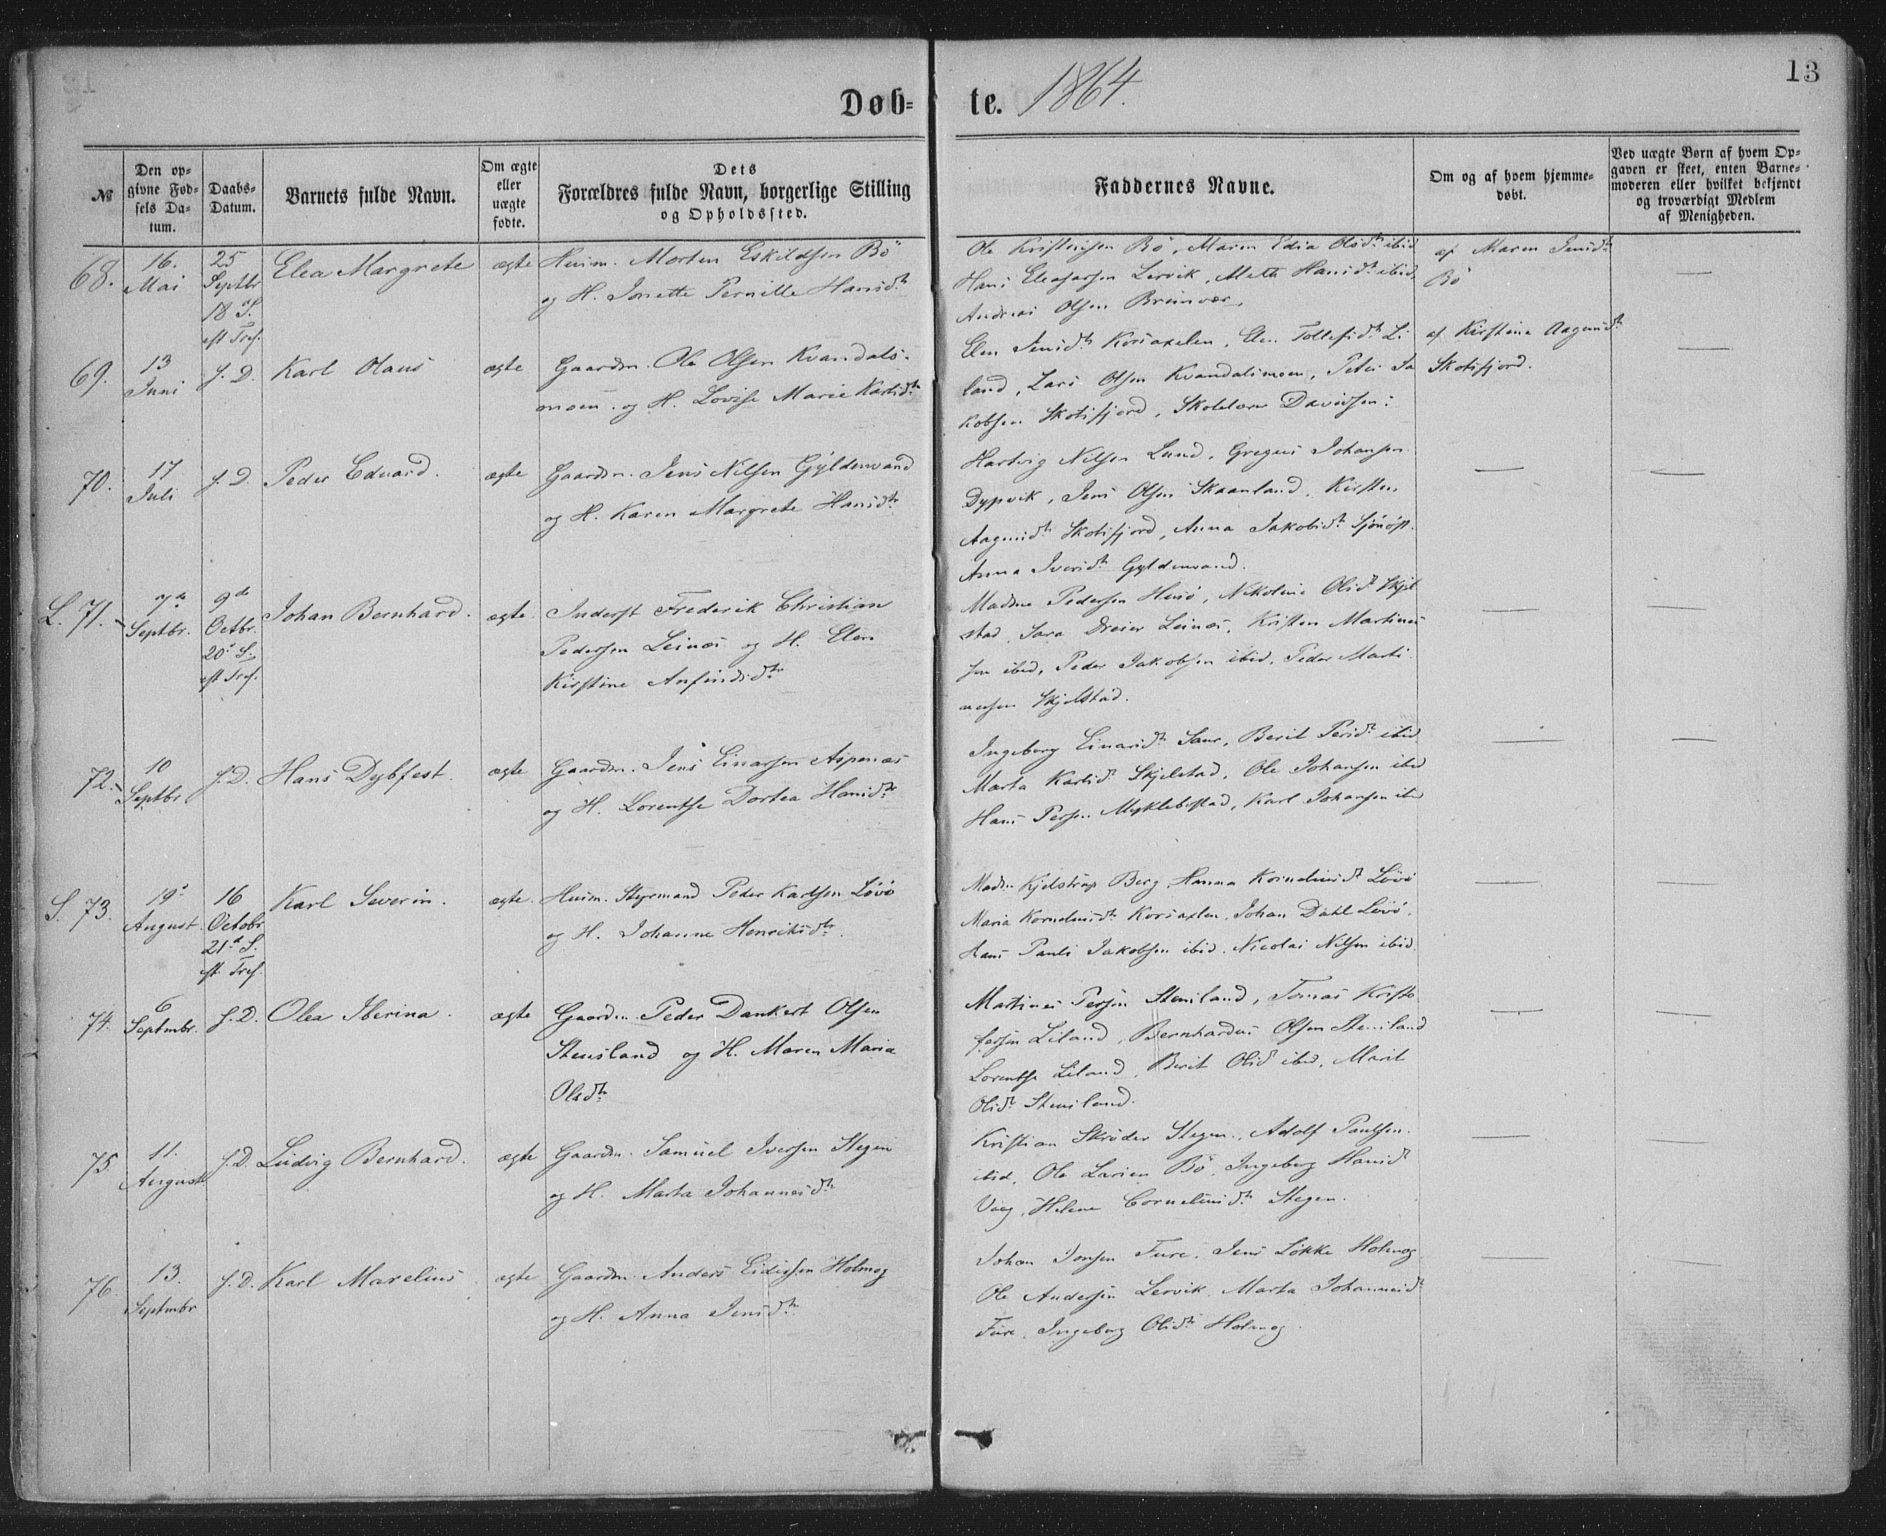 13
Døb-te. 1864.
№
Den op-
givne Fød-
sels Da-
tum.
Daabs-
Datum.
Barnets fulde Navn.
Om ægte
eller
uægte
fødte.
Dets
Forældres fulde Navn, borgerlige Stilling
og Opholdssted.
Faddernes Navne.
Om og af hvem hjemme-
døbt.
Ved uægte Børn af hvem Op-
gaven er skeet, enten Barne-
moderen eller hvilket bekjendt
og troværdigt Medlem
af Menigheden.
68.
16.
Mai
25
Septbr
18 S.
eft Tref.
Elea Margrete
ægte
Huusm. Morten Eskildsen Bö
og H. Jonette Pernille Hansdtr
Ole Kristensen Bö, Maren Edia Olsdtr ibid
Hans Eleasarsen Lervik, Mette Hansdtr ibid
Andreas Olsen Brunvær.
af Maren Jensdtr
Bö
—
69.
13
Juni
s. D.
Karl Olaus
ægte
Gaardm. Ole Olsen Kvandals-
moen. og H. Lovise Marie Karlsdtr
Elen Jensdtr Korsaxelen, Elen Tollefsdtr Li
land, Lars Olsen Kvandalsmoen, Peter Ja
kobsen Skotsfjord, Skolelærer Davidsen.
af Kirstine Aagesdtr
Skotsfjord.
—
70.
17
Juli
s. D.
Peder Edvard.
ægte
Gaardm. Jens Nilsen Gyldenvand
og H. Karen Margrete Hansdtr
Hartvig Nilsen Lund, Gregus Johansen
Dypvik, Jens Olsen Skaanland, Kirsten
Aagesdtr Skotsfjord, Anna Jakobsdtr
Anna Iversdtr Gyldenvand.
—
—
L. 71.
7de
Septbr.
9de
Octbr.
20s S.
eft Tref.
Johan Bernhard.
ægte
Inderst Frederik Christian
Pedersen Leines og H. Elen
Kirstine Anfindsdtr
Madme Pedersen Husö, Nikoline Olsdtr Skjel
stad, Sara Dreier Leines, Kristen Martines
sen ibid, Peder Jakobsen ibid, Peder Marti
nessen Skjelstad.
—
—
72.
10
Septbr
s. D.
Hans Dybfest.
ægte
Gaardm. Jens Einarsen Aspenæs
og H. Lorentse Dortea Hansdtr
Ingeborg Einarsdtr Saur, Berit Persdtr ibid
Marta Karlsdtr Skjelstad, Ole Johansen ibid
Hans Persen Myklebostad, Karl Johansen ibid
—
—
S. 73.
19s
August.
16
Octobr
21d S.
eft Tref.
Karl Severin.
ægte.
Huusm. Styrmand Peder Karlsen Lövö
og H. Johanne Henriksdtr.
Madm Kjelstrup Berg, Hanna Korneliusdtr Lövö
Maria Korneliusdtr Korsaxlen, Johan Dahl Lövö,
Hans Pauls Jakobsen ibid. Nicolai Nilsen ibid
—
—
74.
6
Septmbr.
s. D.
Olea Iberina.
ægte
Gaardm. Peder Dankert Olsen
Stensland og H. Maren Maria
Olsdtr
Martines Persen Stensland, Tomas Kristo
fersen Liland, Bernhardus Olsen Stensland
Lorentse Liland, Berit Olsd ibid, Marit
Olsdtr Stensland.
—
—
75.
11.
August
s. D.
Ludvig Bernhard.
ægte
Gaardm. Samuel Iversen Stegen
og H. Marta Johannesdtr
Kristian Skröder Stegen, Adolf Paulsen
ibid, Ole Larsen Bö, Ingeborg Hansdtr
Vaag, Helene Corneliusdtr Stegen.
—
—
76.
13.
Septmbr
s. D.
Karl Marelius.
ægte
Gaardm. Anders Eidissen Holmag
og H. Anna Jensdtr
Johan Jonsen Fure, Jens Lökke Holmag
Ole Andersen Lervik, Marta Johannesdtr
Fure, Ingeborg Olsdtr Holmag.
—
—